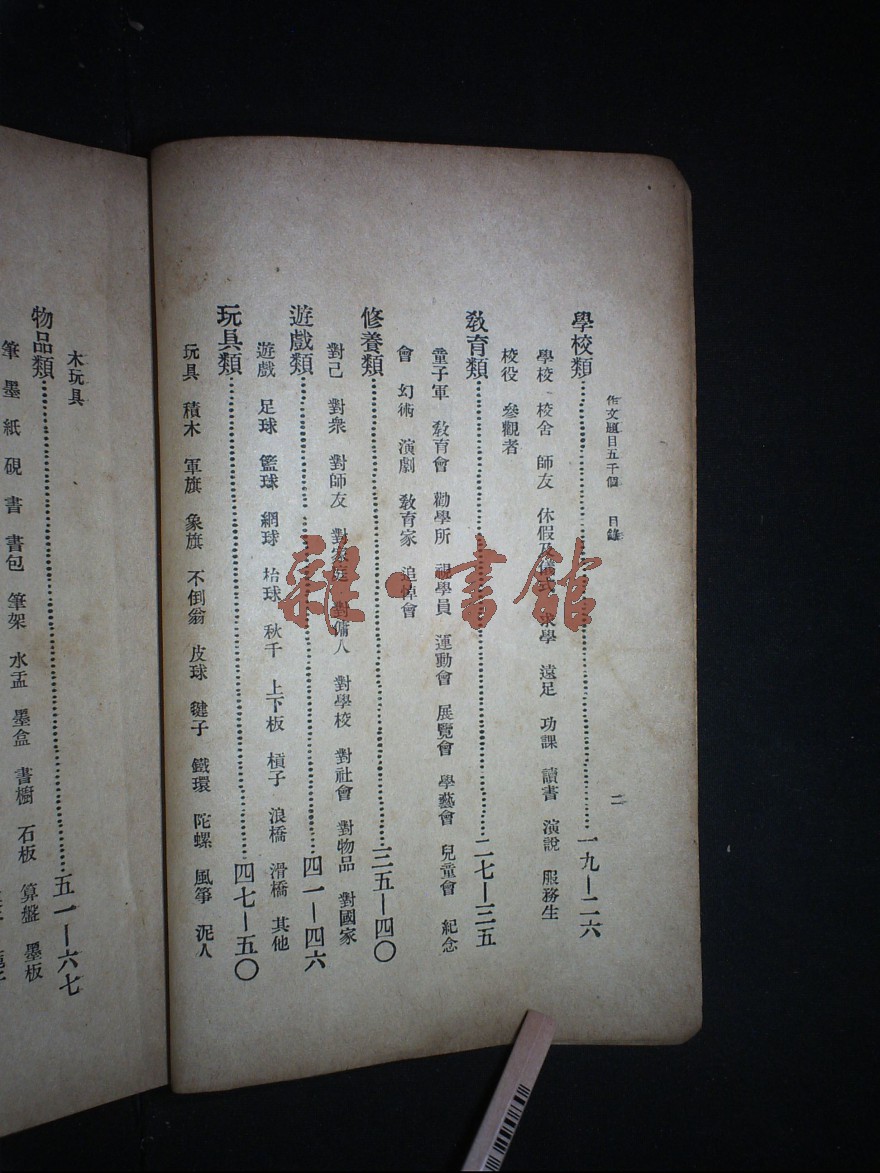 作文題目五千個 目錄 二
學校類……一九—二六
學校 校舍 師友 休假及儀式 求學 遠足 功課 讀書 演說 服務生
校役 參觀者
敎育類……二七—三五
童子軍 敎育會 勸學所 視學員 運動會 展覽會 學藝會 兒童會 紀念
會 幻術 演劇 敎育家 追悼會
修養類……三五—四〇
對己 對衆 對師友 對家庭 對傭人 對學校 對社會 對物品 對國家
遊戲類……四一—四六
遊戲 足球 籃球 網球 枱球 秋千 上下板 槓子 浪橋 滑橋 其他
玩具類……四七—五〇
玩具 積木 軍旗 象旗 不倒翁 皮球 毽子 鐵環 陀螺 風箏 泥人
木玩具
物品類……五一—六七
筆 墨 紙 硯 書 書包 筆架 水盂 墨盒 書櫥 石板 算盤 墨板
雜·書館